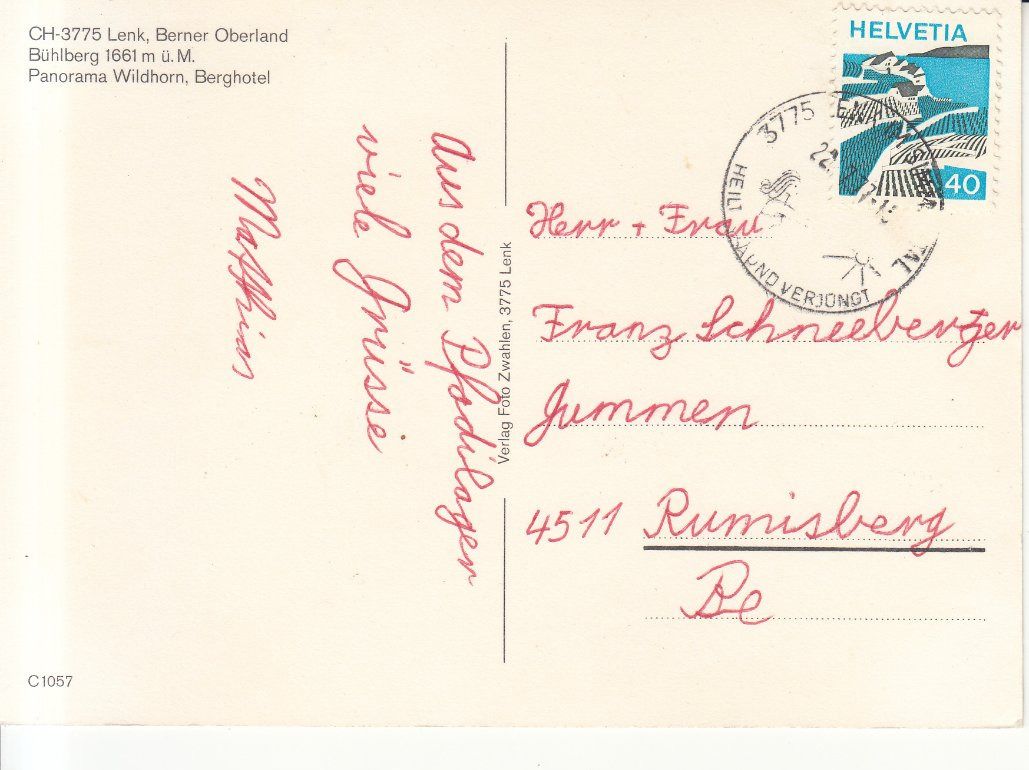 CH-3775 Lenk, Berner Oberland
Bühlberg 1661 m ü. M.
Panorama Wildhorn, Berghotel
Aus dem Pfadilager
viele Grüsse
Matthias
C1057
Verlag Foto Zwahlen, 3775 Lenk
HELVETIA
40
3775
HEILT
UND VERJÜNGT
Herr + Frau
Franz Schneeberger
Jummen
4511 Rumisberg
Be